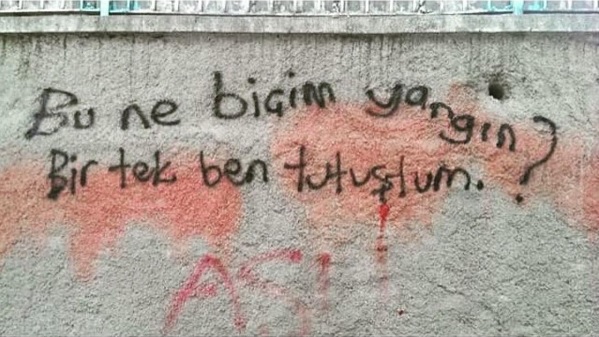 Bu ne biçim yangın?
Bir tek ben tutuştum.